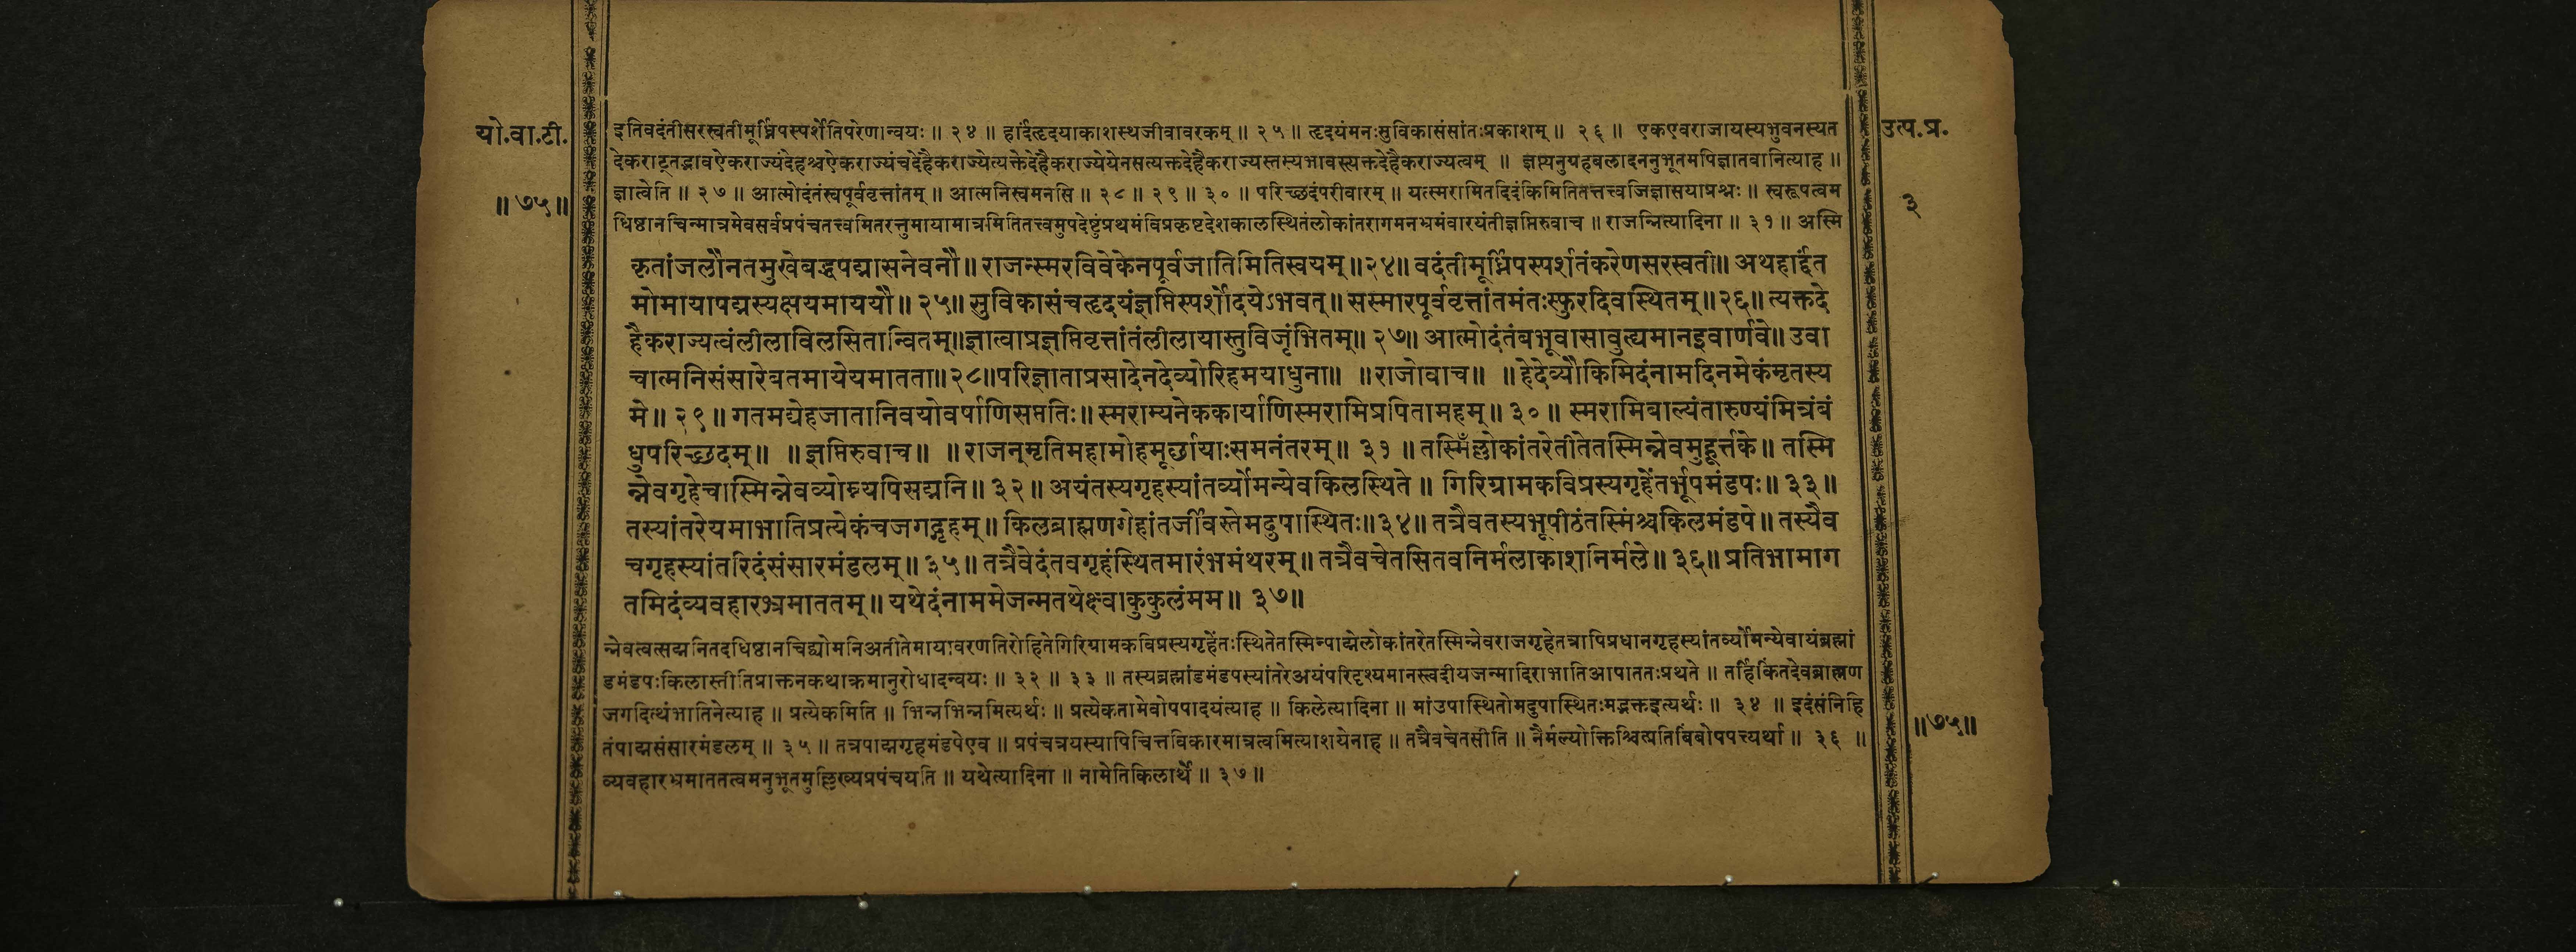 यो.वा.टी.
॥७५॥
उत्प.प्र.
३
इतिवदंतीसरस्वतीमूर्ध्निपस्पर्शेतिपरेणान्वयः ॥ २४ ॥ हार्दंहृदयाकाशस्थजीवावरकम् ॥ २५ ॥ हृदयंमनःसुविकासंसांतःप्रकाशम् ॥ २६ ॥ एकएवराजायस्यभुवनस्यत
देकराट्तद्भावऐकराज्यंदेहश्चऐकराज्यंचदेहैकराज्येत्यक्तेदेहैकराज्येयेनसत्यक्तदेहैकराज्यस्तस्यभावस्त्यक्तदेहैकराज्यत्वम् ॥ ज्ञप्त्यनुग्रहबलादननुभूतमपिज्ञातवानित्याह ॥
ज्ञात्वेति ॥ २७ ॥ आत्मोदंतंस्वपूर्ववृत्तांतम् ॥ आत्मनिस्वमनसि ॥ २८ ॥ २९ ॥ ३० ॥ परिच्छदंपरीवारम् ॥ यत्स्मरामितदिदंकिमितितत्तत्त्वजिज्ञासयाप्रश्नः ॥ स्वरूपत्वम
धिष्ठानचिन्मात्रमेवसर्वप्रपंचतत्त्वमितरत्तुमायामात्रमितितत्त्वमुपदेष्टुंप्रथमंविप्रकृष्टदेशकालस्थितंलोकांतरागमनभ्रमंवारयंतीज्ञप्तिरुवाच ॥ राजन्नित्यादिना ॥ ३१ ॥ अस्मि
कृतांजलौनतमुखेबद्धपद्मासनेवनौ॥ राजन्स्मरविवेकेनपूर्वजातिमितिस्वयम्॥२४॥ वदंतीमूर्ध्निपस्पर्शतंकरेणसरस्वती॥ अथहार्दंत
मोमायापद्मस्यक्षयमाययौ॥ २५॥ सुविकासंचहृदयंज्ञप्तिस्पर्शोदयेऽभवत्॥ सस्मारपूर्ववृत्तांतमंतःस्फुरदिवस्थितम्॥२६॥ त्यक्तदे
हैकराज्यत्वंलीलाविलसितान्वितम्॥ज्ञात्वाप्रज्ञप्तिवृत्तांतंलीलायास्तुविजृंभितम्॥ २७॥ आत्मोदंतंबभूवासावुह्यमानइवार्णवे॥ उवा
चात्मनिसंसारेबतमायेयमातता॥२८॥परिज्ञाताप्रसादेनदेव्योरिहमयाधुना॥ ॥राजोवाच॥ ॥हेदेव्यौकिमिदंनामदिनमेकंमृतस्य
मे॥ २९॥ गतमद्येहजातानिवयोवर्षाणिसप्ततिः॥ स्मराम्यनेककार्याणिस्मरामिप्रपितामहम्॥ ३०॥ स्मरामिबाल्यंतारुण्यंमित्रंबं
धुपरिच्छदम्॥ ॥ज्ञप्तिरुवाच॥ ॥राजन्मृतिमहामोहमूर्छायाःसमनंतरम्॥ ३१॥ तस्मिँल्लोकांतरेतीतेतस्मिन्नेवमुहूर्त्तके॥ तस्मि
न्नेवगृहेचास्मिन्नेवव्योम्न्यपिसद्मनि॥ ३२॥ अयंतस्यगृहस्यांतर्व्योमन्येवकिलस्थिते॥ गिरिग्रामकविप्रस्यगृहेंतर्भूपमंडपः॥ ३३॥
तस्यांतरेयमाभातिप्रत्येकंचजगद्गृहम्॥ किलब्राह्मणगेहांतर्जीवस्तेमदुपास्थितः॥३४॥ तत्रैवतस्यभूपीठंतस्मिंश्चकिलमंडपे॥ तस्यैव
चगृहस्यांतरिदंसंसारमंडलम्॥ ३५॥ तत्रैवेदंतवगृहंस्थितमारंभमंथरम्॥ तत्रैवचेतसितवनिर्मलाकाशनिर्मले॥ ३६॥ प्रतिभामाग
तमिदंव्यवहारभ्रमाततम्॥ यथेदंनाममेजन्मतथेक्ष्वाकुकुलंमम॥ ३७॥
न्नेवत्वत्सद्मनितदधिष्ठानचिद्व्योमनिअतीतेमायावरणतिरोहितेगिरिग्रामकविप्रस्यगृहेंतःस्थितेतस्मिन्पाद्मेलोकांतरेतस्मिन्नेवराजगृहेतत्रापिप्रधानगृहस्यांतर्व्योमन्येवायंब्रह्मां
डमंडपःकिलास्तीतिप्राक्तनकथाक्रमानुरोधादन्वयः ॥ ३२ ॥ ३३ ॥ तस्यब्रह्मांडमंडपस्यांतरेअयंपरिदृश्यमानस्त्वदीयजन्मादिराभातिआपाततःप्रथते ॥ तर्हिकिंतदेवब्राह्मण
जगदित्थंभातिनेत्याह ॥ प्रत्येकमिति ॥ भिन्नभिन्नमित्यर्थः ॥ प्रत्येकतामेवोपपादयंत्याह ॥ किलेत्यादिना ॥ मांउपास्थितोमदुपास्थितःमद्भक्तइत्यर्थः ॥ ३४ ॥ इदंसंनिहि
तंपाद्मसंसारमंडलम् ॥ ३५ ॥ तत्रपाद्मगृहमंडपेएव ॥ प्रपंचत्रयस्यापिचित्तविकारमात्रत्वमित्याशयेनाह ॥ तत्रैवचेतसीति ॥ नैर्मल्योक्तिश्चित्प्रतिबिंबोपपत्त्यर्था ॥ ३६ ॥
॥७५॥
व्यवहारभ्रमाततत्वमनुभूतमुल्लिख्यप्रपंचयति ॥ यथेत्यादिना ॥ नामेतिकिलार्थे ॥ ३७ ॥